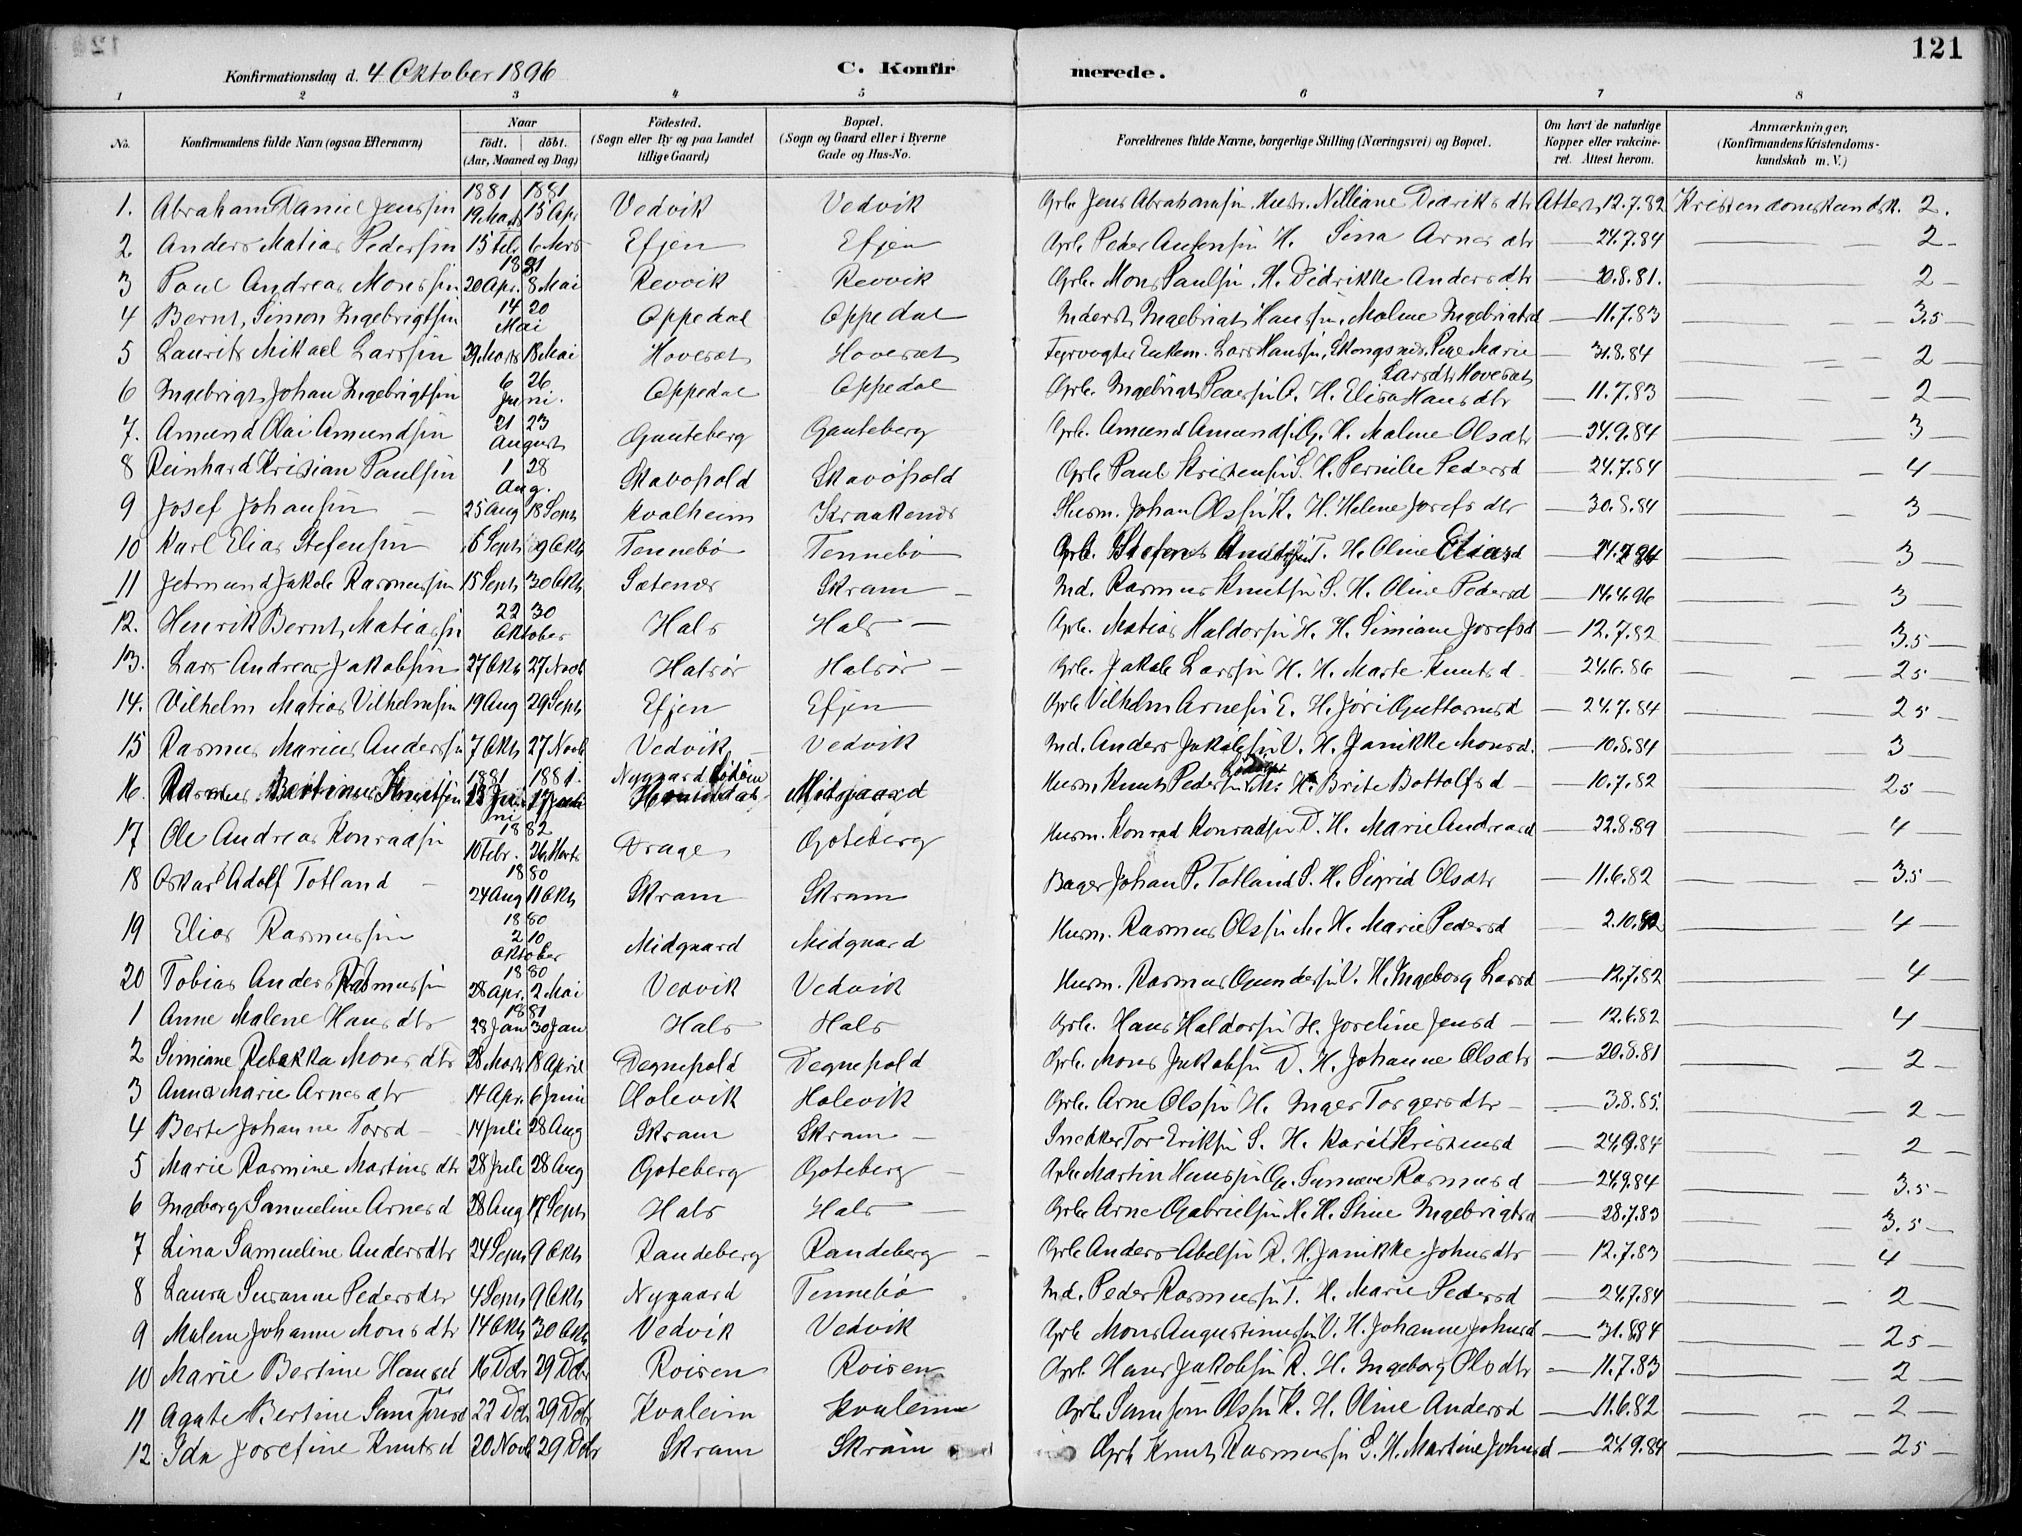 121
Konfirmationsdag d. 4 Oktober 1896 C. Konfirmerede.
1 2 3 4 5 6 7 8
No. Konfirmandens fulde Navn (ogsaa Efternavn) Naar födt. döbt. (Aar, Maaned og Dag) Födested. (Sogn eller By og paa Landet tillige Gaard) Bopæl. (Sogn og Gaard eller i Byerne Gade og Hus-No. Forældrenes fulde Navne, borgerlige Stilling (Næringsvei) og Bopæl. Om havt de naturlige Kopper eller vakcineret. Attest herom. Anmærkninger, (Konfirmandens Kristendomskundskab m. V.)
1. Abraham Daniel Jenssøn 1881 19 Marts 1881 15 Apr Vedvik Vedvik Grb. Jens Abrahamsøn Hustr. Nilliane Didriksdtr Attest 12.7.82 Kristendomskundsk. 2.
2. Anders Matias Pedersøn 15 Febr 6 Mrs Efjen Efjen Grb. Peder H. Sina Arnesdtr — 24.7.84 — 2 —
3 Paul Andreas Monssøn 1881 20 Apr. 8 Mai Revvik Revvik Grb. Mons Paulsøn H. Didrikke Andersdtr — 20.8.81. — 2 —
4 Bernt Simon Ingebrigtsøn 14 20 Mai Oppedal Oppedal Inderst Ingebrigt Hanssøn, Malene Ingebrigtsd — 11.7.83 — 3.5 —
5 Laurits Mikael Larssøn 29 Marts 18 Mai Hovesæt Hovesæt Fyrvogter Enkem. Lars Hanssøn, Pige Marie Larsdtr Hovesæt — 31.8.84 — 2
6 Ingebrigt Johan Ingebrigtsøn 6 26 Juni. Oppedal Oppedal Grb. Ingebrigt Pedersøn O. H. Elisa Hansdtr — 11.7.83 — 2 —
7. Amund Olai Amundsøn 21 23 August Gauteberg Gauteberg Grb. Amund Amundsøn G. H. Malene Olsdtr — 24.9.84 — 3 —
8 Reinhard Kristian Paulsøn 1 28 Aug. Skavøpold Skavøpold Grb Paul Kristensøn S. H. Pernille Pedersd — 24.7.84 — 4 —
9 Josef Johansøn — 25 Aug 18 Sept Kvalheim Kraakenes Husm. Johan Olssøn K. H. Helene Josefsdtr — 30.8.84 — 3 —
10 Karl Elias Stefensøn 6 Septr 9 Okt Tennebø Tennebø Grb. Stefen Knutssøn T. H. Oline Eliasd — 24.7.84 — 3
11 Jetmund Jakob Rasmussøn 15 Septr 30 Okt Sætenes Skram — Ind. Rasmus Knutsøn S. H. Oline Pedersd — 14.4.96 — 3 —
12. Henrik Bernt Matiassøn 22 30 Oktober Hals Hals — Grb. Matias Haldorsøn H. H. Simiane Josefsd — 12.7.82 — 3.5 —
13. Lars Andreas Jakobsøn 27 Okt 27 Novb Halsør Halsør — Grb. Jakob Larssøn H. H. Marte Knutsd — 24.6.86 — 25 —
14. Vilhelm Matias Vilhelmsøn 19 Aug 29 Sept Efjen Efjen — Grb Vilhelm Arnesøn E. H. Jøri Guttormsd — 24.7.84 — 25 —
15 Rasmus Marius Anderssøn 7 Okt 27 Novb Vedvik — Vedvik Ind. Anders Jakobsøn V. H. Janikke Monsd. — 10.8.84 — 3 —
16. Rasmus Bertinus Knutsøn 1881 1881. Juni Nygaard Midgaard Husm Knut Pedersøn M. H. Brite Bottolfsd — 10.7.82 — 25 —
17 Ole Andreas Konradsøn 1882 10 Febr. 26 Marts Drage Goteberg Husm. Konrad Konradsøn D. H. Marie Andreasd — 22.8.89 — 4 —
18 Oskar Adolf Totland — 1880 24 Aug 11 Okt Skram Skram Bager Johan P. Totland S. H. Sigrid Olsdtr — 11.6.82 — 3.5 —
19 Elias Rasmussøn 1880 2 10 Oktober Midgaard Midgaard Husm. Rasmus Olssøn M. H. Marie Pedersd — 2.10.82 — 4 —
20 Tobias Anders Rasmussøn 1880 28 Apr. 2 Mai Vedvik Vedvik Husm. Rasmus Gundersøn V. H. Ingeborg Larsd — 12.7.82 — 4 —
1 Anne Malene Hansdtr 1881 28 Jan 30 Jan Hals Hals Grb. Hans Haldorsøn H. Joseline Jensd — 12.6.82 — 4 —
2 Simiane Rebekka Monsdtr 28 Mart 18 April Degnepold Degnepold Grb. Mons Jakobsøn D. H. Johanne Olsdtr — 20.8.81 — 2 —
3 Anna Marie Arnesdtr 14 Apr. 6 Juni Holevik Holevik Grb. Arne Olssøn H. Inger Torgersdtr — 3.8.85. — 2 —
4 Berte Johanne Torsd — 14 Juli 28 Aug Skram Skram — Snedker Tor Eriksøn S. H. Kari Kristensd — 24.9.84 — 2 —
5 Marie Rasmine Martinsdtr 28 Juli 28 Aug Goteberg Goteberg — Grb. Martin Hanssøn G. Sunneve Rasmusd — 24.9.84 — 3.5 —
6 Ingeborg Samueline Arnesd 28 Aug 17 Sept Hals Hals — Grb. Arne Gabrielsøn H. H. Stine Ingebrigtsd — 28.7.83 — 3.5 —
7 Lina Samueline Andersdtr 24 Sept 9 Okt Randeberg Randeberg — Grb Anders Abelsøn R. H. Janikke Johnsdtr — 12.7.83 — 4 —
8 Laura Susanne Pedersdtr 4 Sept 9 Okt Nygaard Tennebø Ind. Peder Rasmussøn T. H. Marie Pedersd — 24.7.84 — 2 —
9 Malene Johanne Monsdtr 14 Okt 30 Okt Vedvik Vedvik Grb Mons Augustinussøn V. H. Johanne Johnsd — 31.8.84 — 25 —
10 Marie Bertine Hansd 16 Dcbr 29 Dcbr Roisen Roisen Grb. Hans Jakobsøn R. H. Ingeborg Olsdtr — 11.7.83 — 2 —
11 Agate Bertine Samsonsd 22 Dcbr 29 Dcbr Kvaleim Kvaleim Grb. Samson Olssøn K. H. Oline Andersd — 11.6.82 — 2 —
12 Ida Josefine Knutsd 20 Novb 29 Dcbr Skram Skram Grb Knut Rasmussøn S. H. Martine Johnsd — 24.9.84 — 25 —